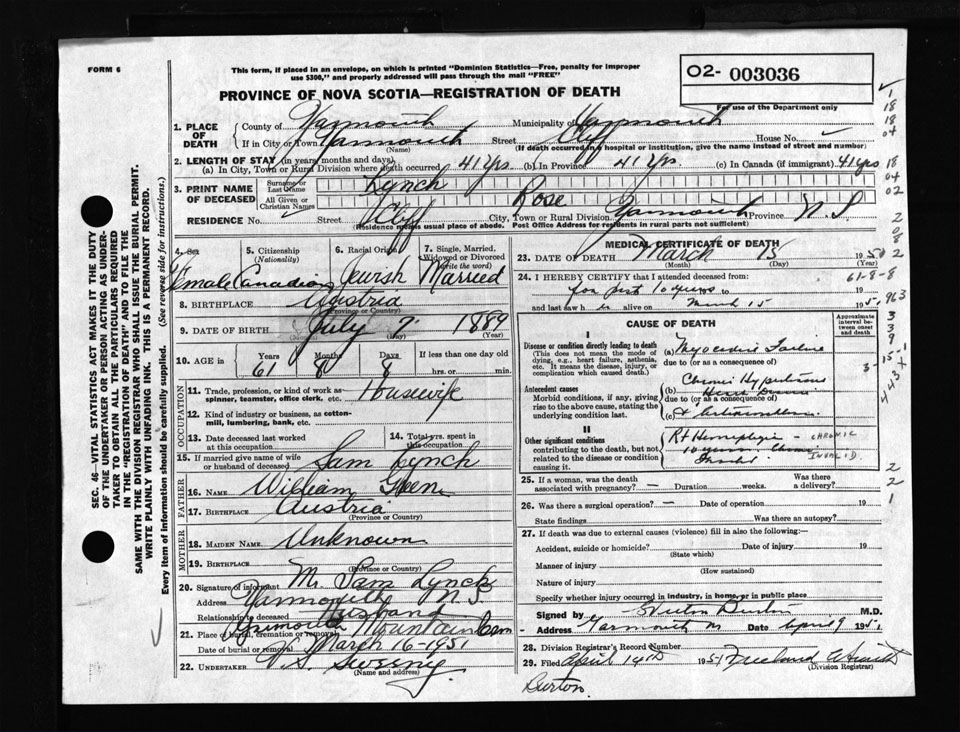 FORM 6
This form, if placed in an envelope, on which is printed "Dominion Statistics—Free, penalty for improper
use $300," and properly addressed will pass through the mail "FREE"
O2- 003036
PROVINCE OF NOVA SCOTIA—REGISTRATION OF DEATH
For use of the Department only
1. PLACE OF DEATH County of Yarmouth Municipality of Yarmouth
If in City or Town Yarmouth Street Cliff House No.
(Name) (If death occurred in a hospital or institution, give the name instead of street and number)
2. LENGTH OF STAY (in years, months and days)
(a) In City, Town or Rural Division where death occurred 41 Yrs (b) In Province 41 Yrs (c) In Canada (if immigrant) 41 yrs
3. PRINT NAME OF DECEASED Surname or Last Name Lynch
All Given or Christian Names Rose
RESIDENCE No. Street Cliff City, Town or Rural Division Yarmouth Province N.S.
(Residence means usual place of abode. Post Office Address for residents in rural parts not sufficient)
4. Sex 5. Citizenship (Nationality) 6. Racial Origin 7. Single, Married, Widowed or Divorced (write the word)
Female Canadian Jewish Married
8. BIRTHPLACE Austria
(Province or Country)
9. DATE OF BIRTH July 7 1889
(Month) (Day) (Year)
10. AGE in Years Months Days If less than one day old
61 8 8 hrs. or min.
OCCUPATION
11. Trade, profession, or kind of work as—spinner, teamster, office clerk, etc. Housewife
12. Kind of industry or business, as cotton-mill, lumbering, bank, etc.
13. Date deceased last worked at this occupation 14. Total yrs. spent in this occupation
15. If married give name of wife or husband of deceased Sam Lynch
FATHER
16. NAME William
17. BIRTHPLACE Austria
(Province or Country)
MOTHER
18. MAIDEN NAME Unknown
19. BIRTHPLACE
(Province or Country)
20. Signature of informant Mr. Sam Lynch
Address Yarmouth N.S.
Relationship to deceased Husband
21. Place of burial, cremation or removal Yarmouth Mountain Cem
Date of burial or removal March 16-1951
22. UNDERTAKER V.S. Sweeny
(Name and address)
MEDICAL CERTIFICATE OF DEATH
23. DATE OF DEATH March 15 19
(Month) (Day) (Year)
24. I HEREBY CERTIFY that I attended deceased from:
for past 10 years to 19
and last saw h alive on March 15 1951
61-8-8
CAUSE OF DEATH
Approximate interval between onset and death
I
Disease or condition directly leading to death
(This does not mean the mode of dying, e.g., heart failure, asthenia, etc. It means the disease, injury, or complication which caused death.)
(a) Failure
due to (or as a consequence of)
Antecedent causes
Morbid conditions, if any, giving rise to the above cause, stating the underlying condition last.
(b)
due to (or as a consequence of)
(c)
II
Other significant conditions contributing to the death, but not related to the disease or condition causing it.
Rt Hemiplegia - CHRONIC
10 years INVALID
25. If a woman, was the death associated with pregnancy? — Duration weeks. Was there a delivery?
26. Was there a surgical operation? — Date of operation 19
State findings Was there an autopsy?
27. If death was due to external causes (violence) fill in also the following:
Accident, suicide or homicide? Date of injury 19
(State which)
Manner of injury
(How sustained)
Nature of injury
Specify whether injury occurred in industry, in home, or in public place
Signed by Burton M.D.
Address Yarmouth Date April 9 1951
28. Division Registrar's Record Number
29. Filed April 14th 1951
(Division Registrar)
Burton.
SEC. 46—VITAL STATISTICS ACT MAKES IT THE DUTY
OF THE UNDERTAKER OR PERSON ACTING AS UNDER-
TAKER TO OBTAIN ALL THE PARTICULARS REQUIRED
IN THE "REGISTRATION OF DEATH" AND TO FILE THE
SAME WITH THE DIVISION REGISTRAR WHO SHALL ISSUE THE BURIAL PERMIT.
WRITE PLAINLY WITH UNFADING INK. THIS IS A PERMANENT RECORD.
Every item of information should be carefully supplied. (See reverse side for instructions.)